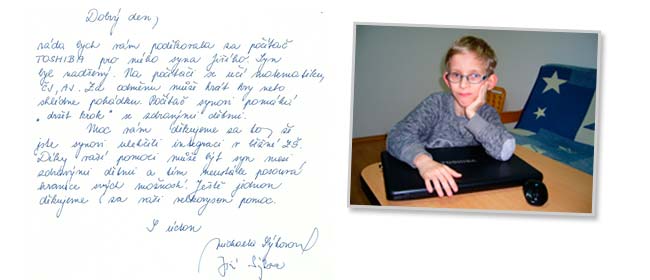 Dobrý den,
ráda bych vám poděkovala za počítač
TOSHIBA pro mého syna Jiřího. Syn
byl nadšený. Na počítači se učí matematiku,
ČJ, AJ. Za odměnu může hrát hry nebo
shlédne pohádku. Počítač synovi pomáhá
"držet krok" se zdravými dětmi.
Moc vám děkujeme za to, že
jste synovi ulehčili integraci v běžné ZŠ.
Díky vaší pomoci může být syn mezi
zdravými dětmi a tím neustále posouvá
hranice svých možností. Ještě jednou
děkujeme za vaši nezkrysem pomoc.
S úctou
Michaela Sýkorová
Jiří Sýkora
TOSHIBA